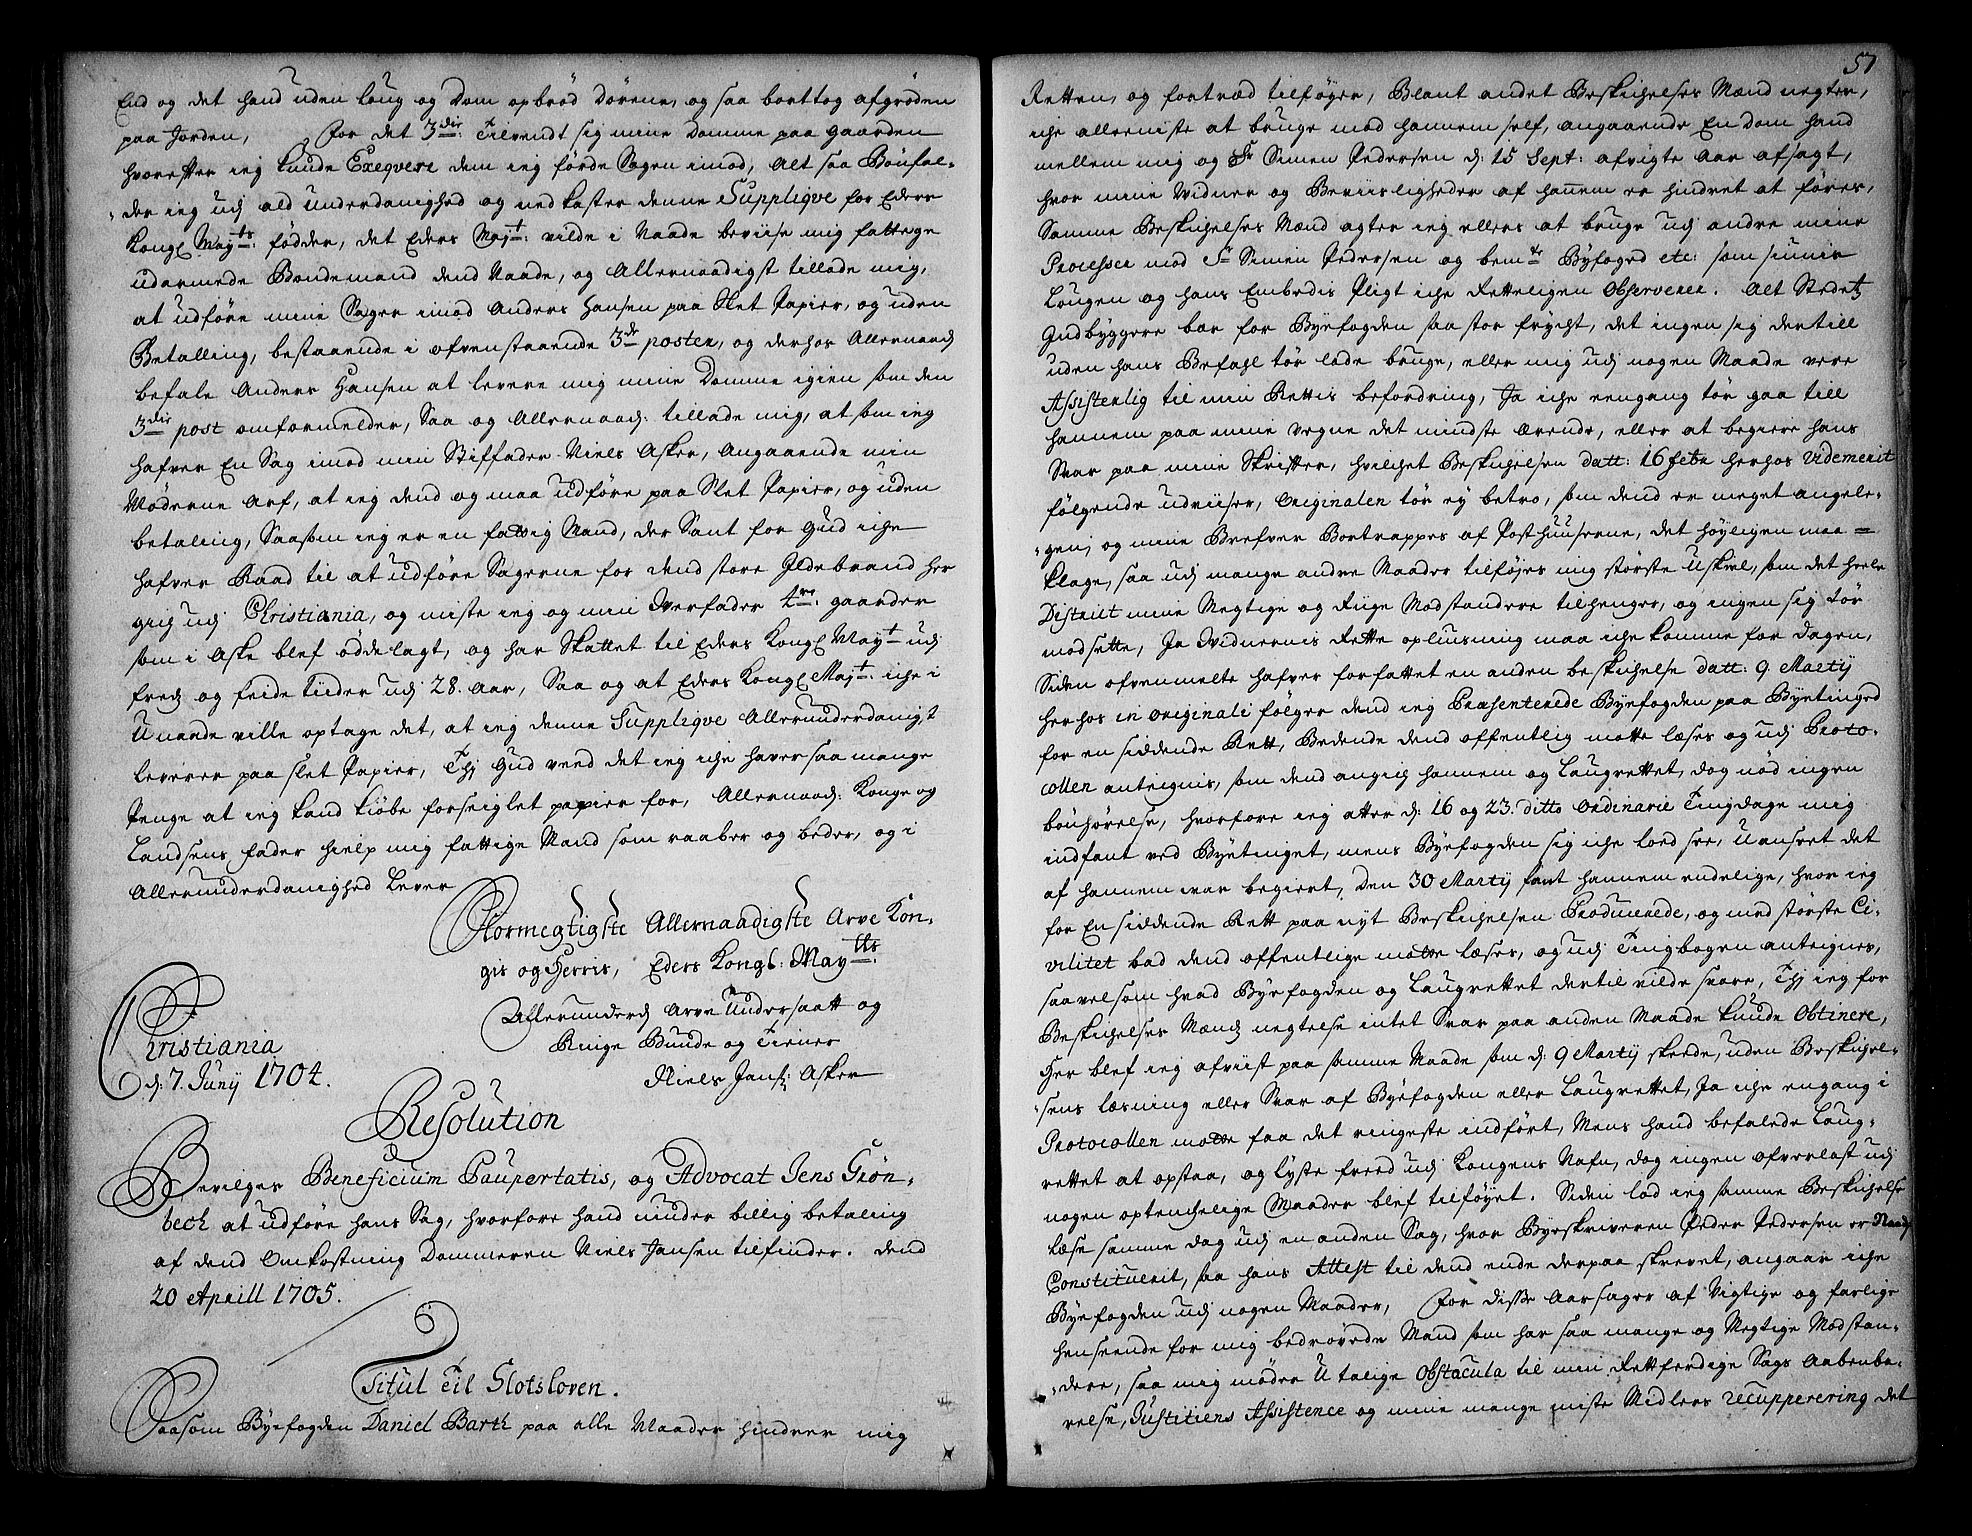 End og det hand uden Loug og Dom opbrød Dørene, og saa borttog afgrøden
paa Jorden, For det 3die: Tilvendt sig mine Domme paa gaarden
hvorefter ieg kunde Exeqvere dem ieg førde Sagen imod, Alt saa Bønfal-
der ieg udj ald underdanighed og nedkaster denne Suppliqve for Eders
Kongl Mayts: fødder, det Eders Mayt: vilde i Naade beviise mig fattege
udarmede Bondemand dend Naade, og Allernaadigst tillade mig,
at udføre mine Sager imod Anders Hansen paa Slet Papier, og uden
Betalling, bestaaende i ofvenstaaende 3de poster, og derhos Allernaad
befale Anders Hansen at levere mig mine Domme igien som den
3die post omformelder, Saa og Allernaad: tillade mig, at som ieg
hafver En Sag imod min Stiffader Niels Asker, Angaaende min
Møderne Arf, at ieg dend og maa udføre paa Slet Papier, og uden
betaling, Saasom ieg er en fattig Mand, der Sant for Gud iche
hafver Raad til at udføre Sagerne for dend store Ildebrand her
gich udj Christiania, og miste ieg og min Verfader 4re: gaarder
som i Aske blef ødelagt, og har Skattet til Eders Kongl Mayt udj
fred og feide tiider udj 28. Aar, Saa og at Eders Kongl Mayt: iche i
Unaade ville optage det, at ieg denne Suppliqve Allerunderdanigst
leverer paa slet Papier, Thj Gud veed det ieg iche haver saa mange
Penge at ieg kand kiøbe forseiglet papier for, Allernaad: Konge og
Landsens fader hielp mig fattige Mand som raaber og beder, og i
Allerunderdanighed Lever
Stormegtigste Allernaadigste Arve Kon-
gis og Herris, Eders Kongl: Maytts:
Allerunderd Arve Undersaatt og
Ringe Bunde og Tiener
Niels Jans: Asker
Christiania
d: 7. Junij 1704.
Resolution
Bevilges Beneficium Paupertatis, og Advocat Jens Grøn-
bech at udføre hans Sag, hvorfore hand niuder billig betaling
af dend Omkostning Dommeren Niels Jansen tilfinder. Dend
20 Aprill 1705.
Titul Til Slotsloven.
Saasom Byefogden Daniel Barth paa alle Maader hindrer mig
57
Retten, og fortræd tilføyer, Blant andet Beskichelses Mænd negter,
iche allerniste at bruge mod hannem self, angaaende En dom hand
mellem mig og Sr Simen Pedersen d: 15 Sept: afvigte Aar afsagt,
hvor mine Vidner og Beviisligheder af hannem er hindret at føres,
Samme Beskichelses Mænd agter ieg ellers at bruge udj andre mine
Processer mod Sr Simen Pedersen og bemte Byfoged etc: som siunis
Lougen og hans Embedis Pligt iche Retteligen Observerer. Alt Stedetz
Gudbyggere bær for Byefogden saa stor frycht, det ingen sig dertill
uden hans Befahl tør lade bruge, eller mig udj nogen Maade vere
Assistenlig til min Rettis befordring, Ja iche eengang tør gaa till
hannem paa mine vegne det mindste Ærende, eller at begiere hans
Svar paa mine Skrifter, hvilchet Beskichelsen datt: 16 febr herhos videmerit
følgende udviiser, Originalen tør ey betro, som dend er meget angele-
gen, og mine Brefver Bortrappes af Posthuuserne, det høyligen maa
Klage, saa udj mange andre Maader tilføjes mig største Uskiel, som det heele
District mine Megtige og Riige Modstandere tilhenger, og ingen sig tør
modsette, Ja Vidnernis Rette opliusning maa iche komme for dagen,
Siden ofvenmelte hafver forfattet en anden beskichelse datt: 9 Martij
herhos in originali følger dend ieg Præsenterede Byefogden paa Byetinged
for en siddende Rett, Bedende dend offentlig motte læses og udj Proto-
collen antegnis, som dend angich hannem og Laugrettet, dog nød ingen
bønhørelse, hvorfore ieg atter d: 16 og 23. ditto Ordinarie Tingdage mig
indfant ved Byetinget, mens Byefogden sig iche loed see, Uanseet det
af hannem war begiert, Den 30 Martij fant hannem endelige, hvor ieg
for En siddende Rett paa nyt Beskichelsen Producerede, og med største Ci-
vilitet bad dend offentlige motte læses, og udj Tingbogen antegnes,
saavelsom hvad Byefogden og Laugrettet dertil vilde svare, Thj ieg for
Beskichelses Mænd negtelse intet Svar paa anden Maade kunde Obtinere,
Her blef ieg afviist paa samme Maade som d: 9 Martij skeede, uden Beskichel-
sens læsning eller Svar af Byefogden eller Laugrettet, Ja iche engang i
Protocollen motte faa det ringeste indført, Mens hand befalede Laug-
rettet at opstaa, og lyste freed udj Kongens Nafn, dog ingen ofverlast udj
nogen optenchelige Maader blef tilføyet. Siden lod ieg samme Beskichelse
læse samme dag udj en anden Sag, hvor Byeskriveren Peder Pedersen er Naad
Constituerit, saa hans Attest til dend ende derpaa skrevet, angaar iche
Byefogden udj nogen Maader, For disse Aarsager af Vigtige og farlige
henseende for mig bedrøvede Mand som har saa mange og Megtige Modstan-
dere, saa mig møder Utalige Obstacula til min Rettferdige Sags Aabenba-
relse, Justitiens Assistence og mine mange miste Midlers recupperering det